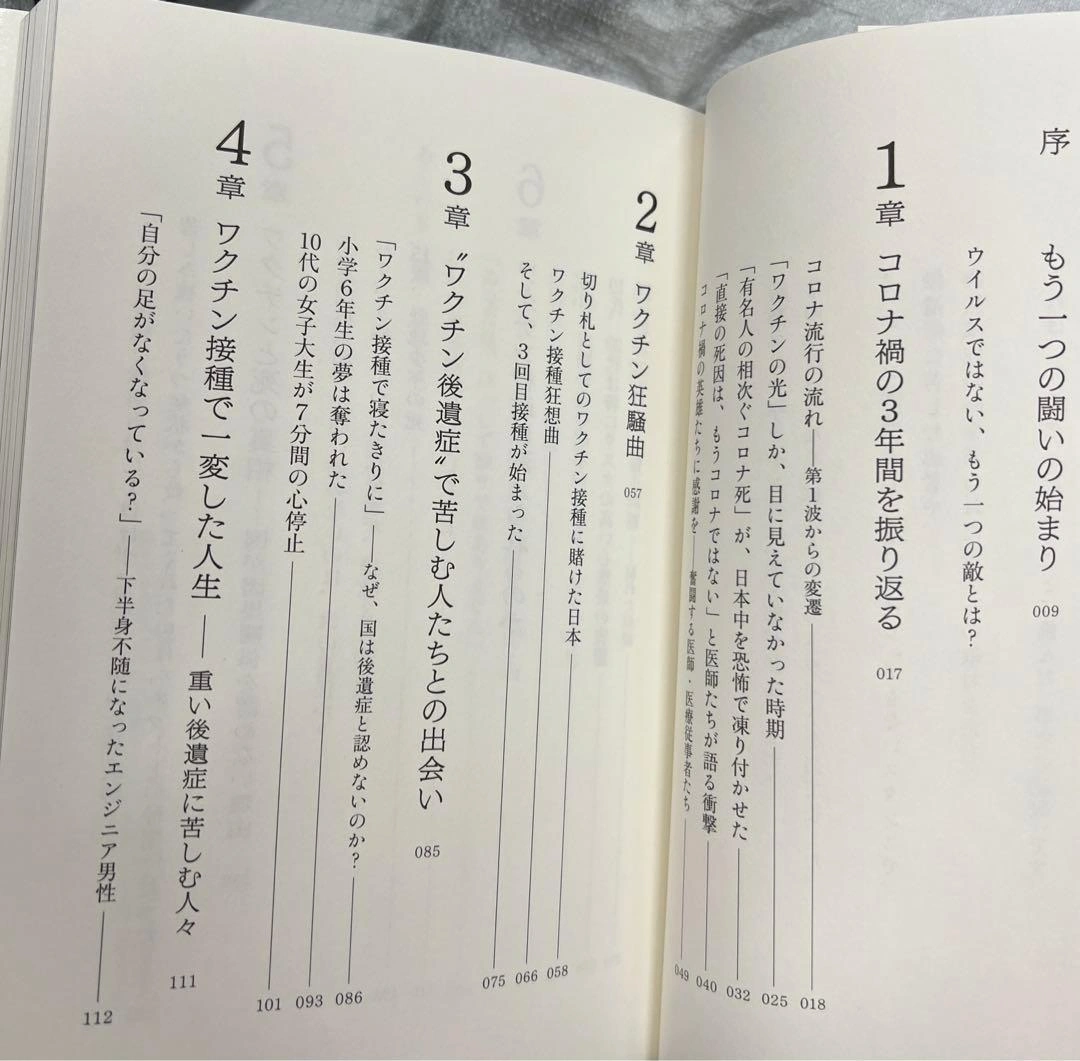 序 もう一つの闘いの始まり 009
ウイルスではない、もう一つの敵とは?
1章 コロナ禍の3年間を振り返る 017
コロナ流行の流れ――第1波からの変遷 018
「ワクチンの光」しか、目に見えていなかった時期 025
「有名人の相次ぐコロナ死」が、日本中を恐怖で凍り付かせた 032
「直接の死因は、もうコロナではない」と医師たちが語る衝撃 040
コロナ禍の英雄たちに感謝を――奮闘する医師・医療従事者たち 049
2章 ワクチン狂騒曲 057
切り札としてのワクチン接種に賭けた日本 058
ワクチン接種狂想曲 066
そして、3回目接種が始まった 075
3章 〝ワクチン後遺症〟で苦しむ人たちとの出会い 085
「ワクチン接種で寝たきりに」――なぜ、国は後遺症と認めないのか? 086
小学6年生の夢は奪われた 093
10代の女子大生が7分間の心停止 101
4章 ワクチン接種で一変した人生――重い後遺症に苦しむ人々 111
「自分の足がなくなっている?」――下半身不随になったエンジニア男性 112